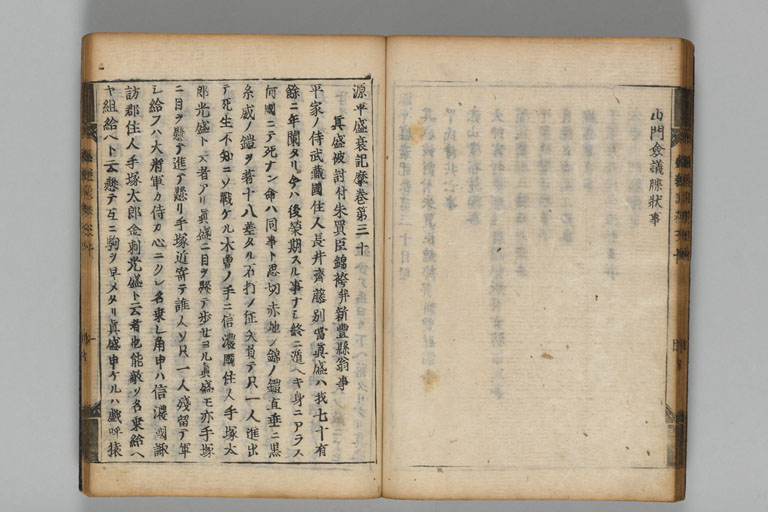 山門僉議牒狀事
源平盛衰記摩卷第三十
眞盛被討付朱買臣錦袴弁新豐縣翁事
平家ノ侍武藏國住人長井齊藤別當眞盛ハ我七十有
餘ニ年闌タリ今ハ後榮期スル事ナシ終ニ遁ヘキ身ニアラス
何國ニテ死ナン命ハ同事ト思切赤地ノ錦ノ鎧直垂ニ黒
糸威ノ鎧ヲ着十八差タル石打ノ征矢負テ只一人進出
テ死生不知ニソ戰ケル木曾ノ手ニ信濃國住人手塚太
郎光盛ト云者アリ眞盛ニ目ヲ懸テ歩セヨル眞盛モ亦手塚
ニ目ヲ懸テ進テ懸リ手塚近寄テ誰人ソ只一人殘留テ軍
シ給フハ大將軍カ侍カ心ニクシ名乘レ角申ハ信濃國諏
訪郡住人手塚太郎金刺光盛ト云者也能敵ソ名乘給ヘ
ヤ組給ヘト云懸テ互ニ駒ヲ早メタリ眞盛申ケルハ戲呼猿